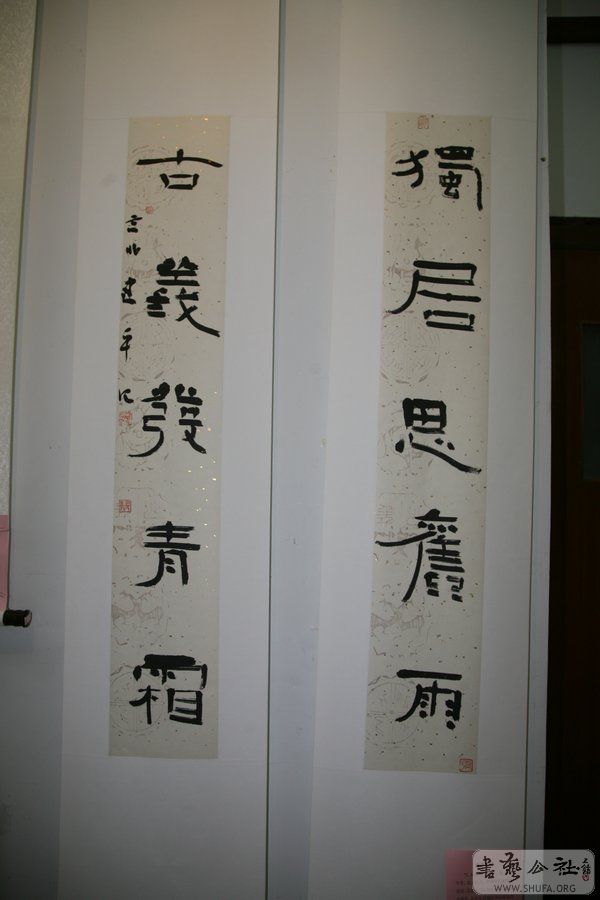 獨居思舊雨
古義發青霜
書藝公社
WWW.SHUFA.ORG